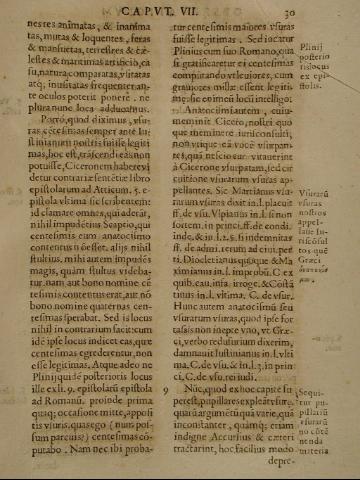 CAPVT. VII. 30
nes res animatas, & inanima
tas, mutas & loquentes, feras
& mansuetas, terrestres & cæ
lestes & maritimas artificio, ca
su, natura comparatas, vsitatas
atq; inusitatas frequenter an-
te oculos poterit ponere. ne
plura nunc loca adducamus.
Porrò, quod diximus, vsu-
ras cẽtesimas semper ante Iu-
stinianum nostris fuisse legiti
mas, hoc est, trãscendi eas non
potuisse, Ciceronem habere vi
detur contrariæ sentẽtiæ libro
epistolarum ad Atticum. 5. e-
pistola vltima sic scribentem:
id clamare omnes, qui aderãt,
nihil impudẽtius Scaptio, qui
centesimis cum anatocismo
contentus nõ esset, alijs nihil
stultius, mihi autem impudẽs
magis, quàm stultus videba-
tur, nam aut bono nomine cẽ
tesimis contentus erat, aut nõ
bono nomine quaternas cen-
tesimas sperabat. Sed is locus
nihil in contrarium facit: cum
idẽ ipse locus indicet eas, quæ
centesimas egrederentur, non
esse legitimas, Atque adeo ne
Plinij quidẽ posterioris locus
ille ex li. 9. epistolarũ epistola
ad Romanũ. proinde prima
quaq; occasione mitte, apposi
tis vsuris, quas ego (num pos-
sum parcius?) centesimas cõ-
putabo. Nam nec ibi proba-
tur centesimis maiores vsuras
fuisse legitimas. Sed iocatur
Plinius cum suo Romano, qua
si gratificaretur ei centesimas
computando vt leuiores, cum
grauiores missæ essent legiti-
mę: sic eo ineũ loci intelligo.
Anatocismi autem, cuius
meminit Cicero, nostri quo
que meminere iurisconsulti,
non vtique ea voce vsurpan-
tes, quã nescio cur vitauerint
à Cicerone vsurpatam, sed cir
cuitione vsurarum vsuras ap-
pellantes. Sic Martianus vsu-
rarum vsuras dixit in l. placuit
ff. de vsu. Vlpianus in l. si non
sortem. in princi. ff. de condi.
inde. & in l. 2. §. si indemnitas
ff. de admi. rerum ad ciui. per
ti. Diocletianus quoque & Ma
ximianus in l. improbũ. C. ex
quib. cau. infa. irroge. & Costã
tinus in l. vltima. C. de vsur.
Hunc autem anatocismũ seu
vsurarum vsuras, quod ipse for
tassis non inepte vno, vt Græ-
ci, verbo redusurium dixerim,
damnauit Iustinianus in l. vlti
ma. C. de vsu. & in l. 3. in prin-
ci. C. de vsu. rei iudi.
9 Nũc, quod ex hoc capite su
perest, pupillares expleãt vsurę.
quarũ argumẽti quã varie, quã
inconstanter, quamq; etiam
indigne Accursius & cæteri
tractarint, hoc facilius modo
depre-
Plinij
posterio
ris locus
ex epi-
stolis.
Vsurarũ
vsuras
nostros
appel-
lasse iu-
riscõsul
tos quẽ
Græci
Sequi-
tur pu-
pillariũ
vsurarũ
nõ cõtẽ
nenda
materia.